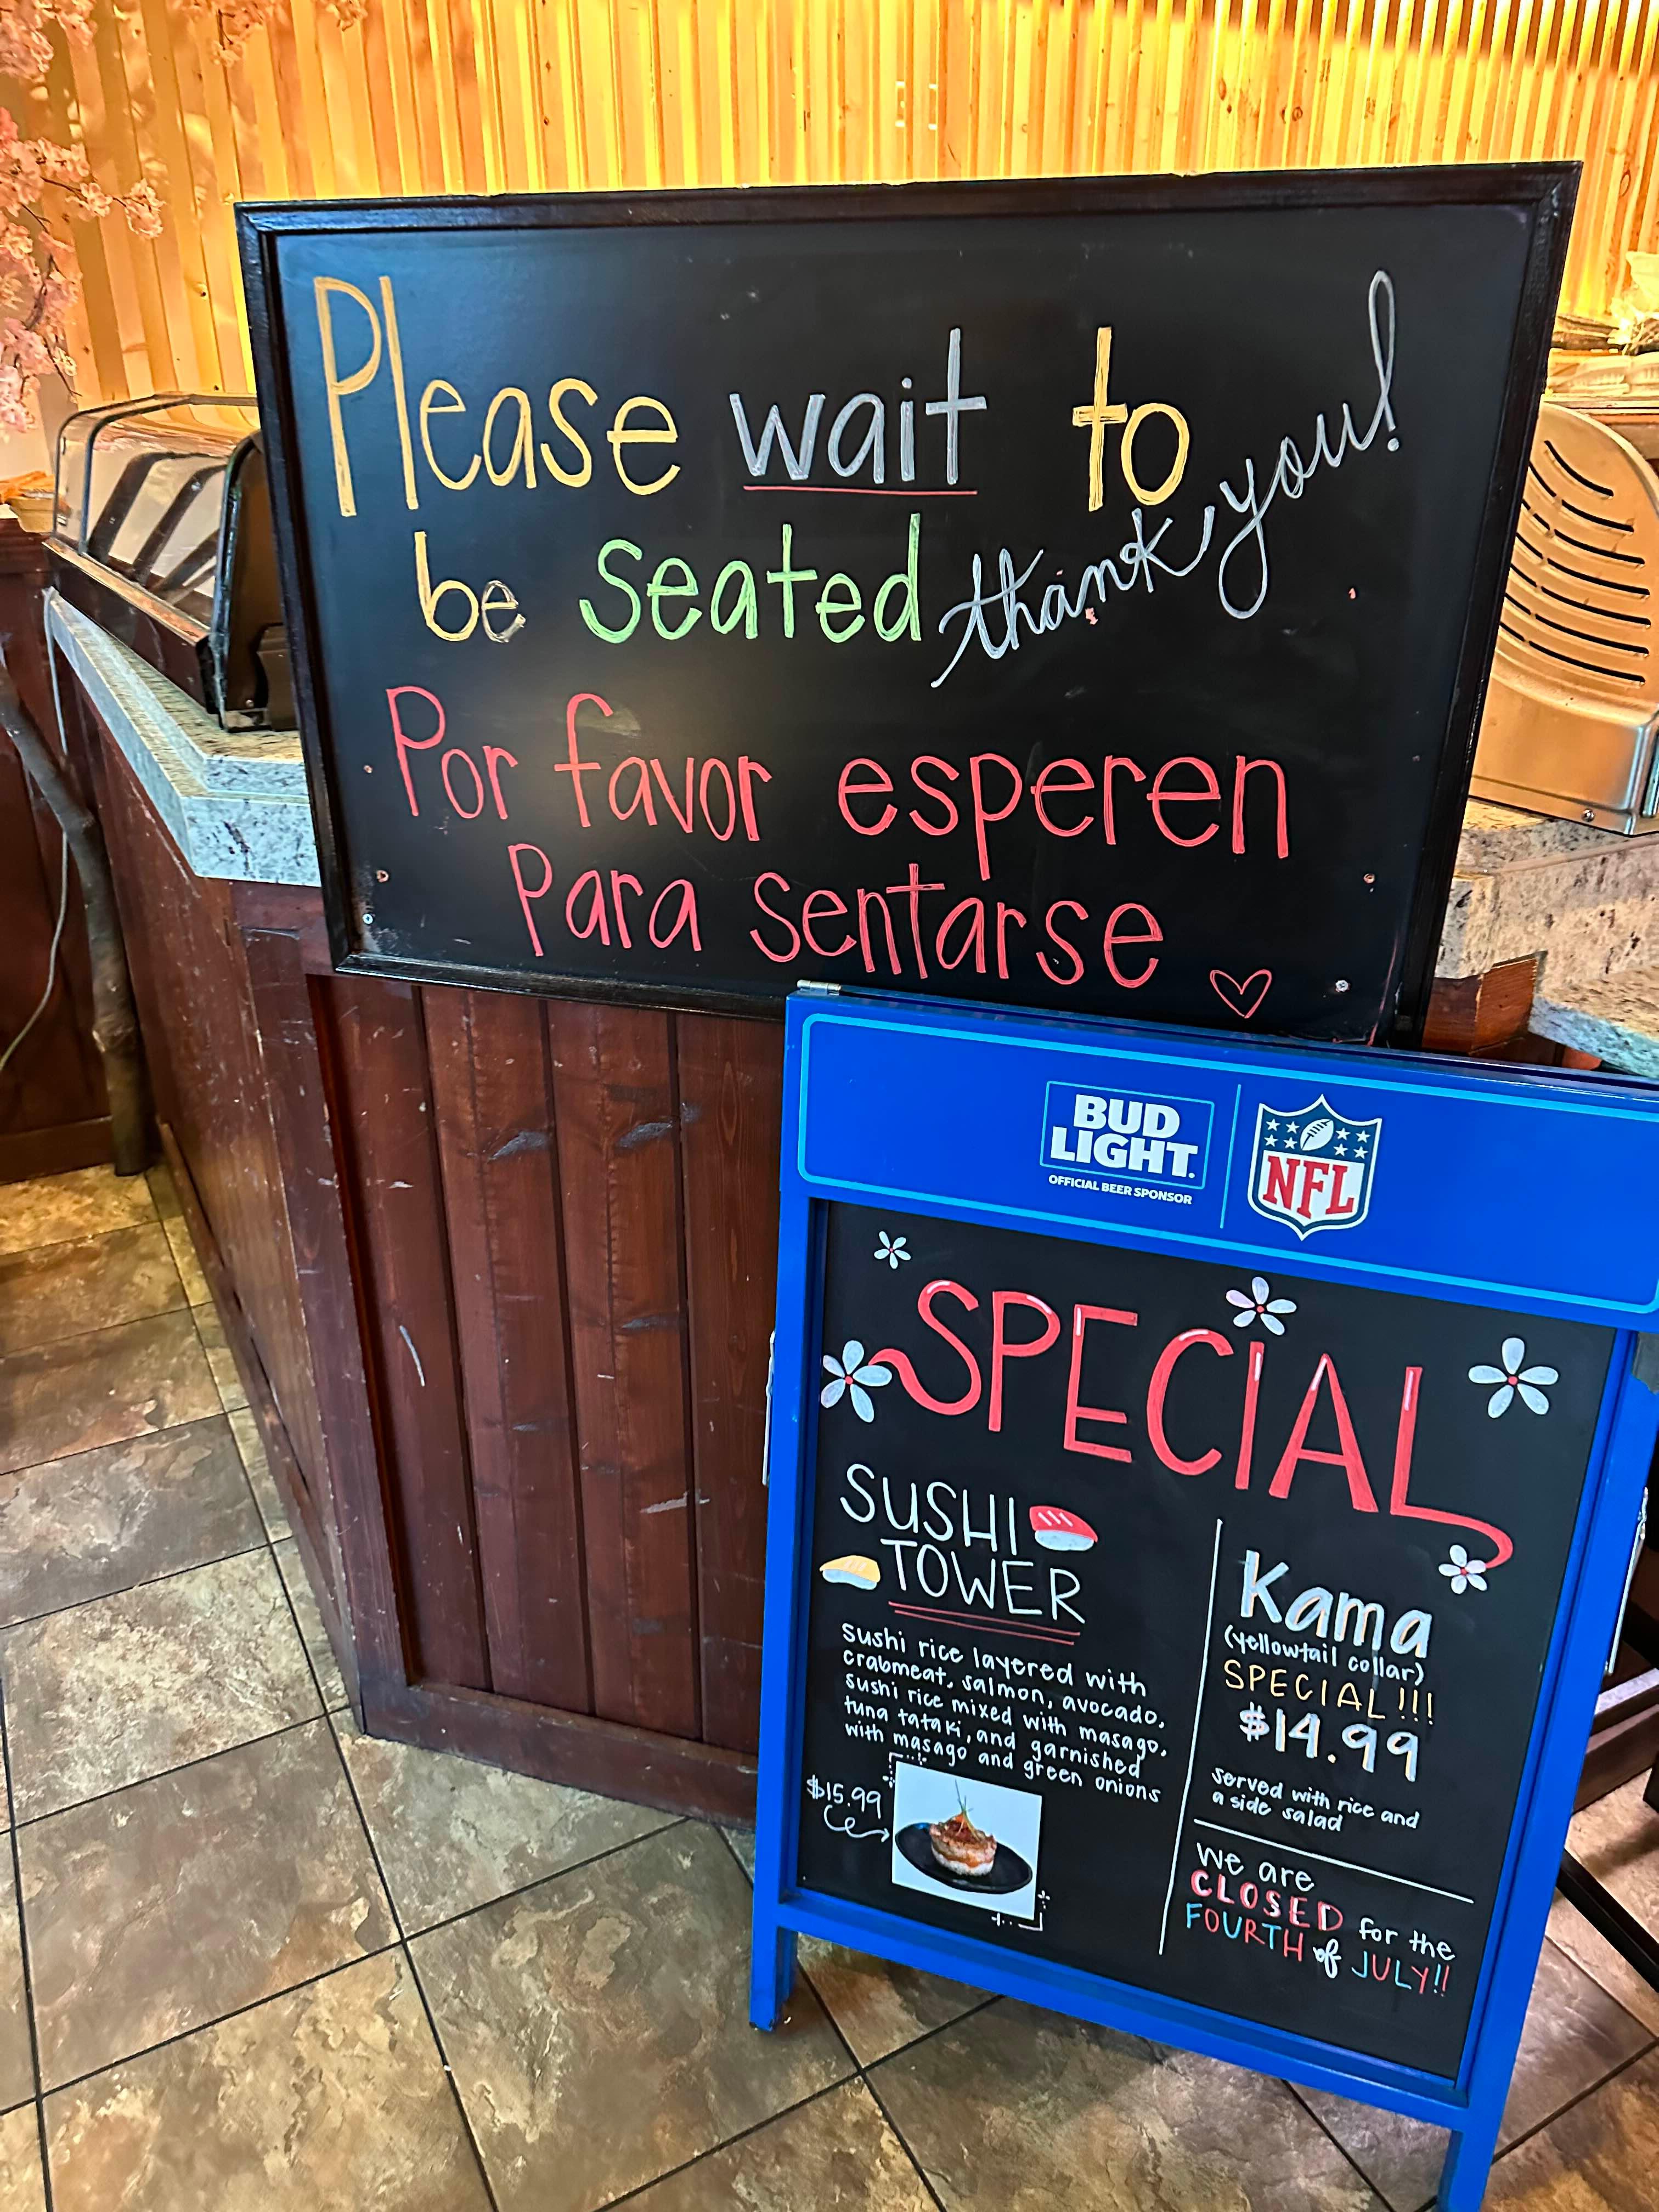 Please wait to
be seated thank you!
Por favor esperen
Para sentarse
BUD
LIGHT.
OFFICIAL BEER SPONSOR
NFL
SPECIAL
SUSHI
TOWER
Sushi rice layered with
crabmeat, salmon, avocado,
sushi rice mixed with masago,
tuna tataki, and garnished
with masago and green onions
$15.99
Kama
(yellowtail collar)
SPECIAL!!!
$14.99
served with rice and
a side salad
We are
CLOSED for the
FOURTH of JULY!!